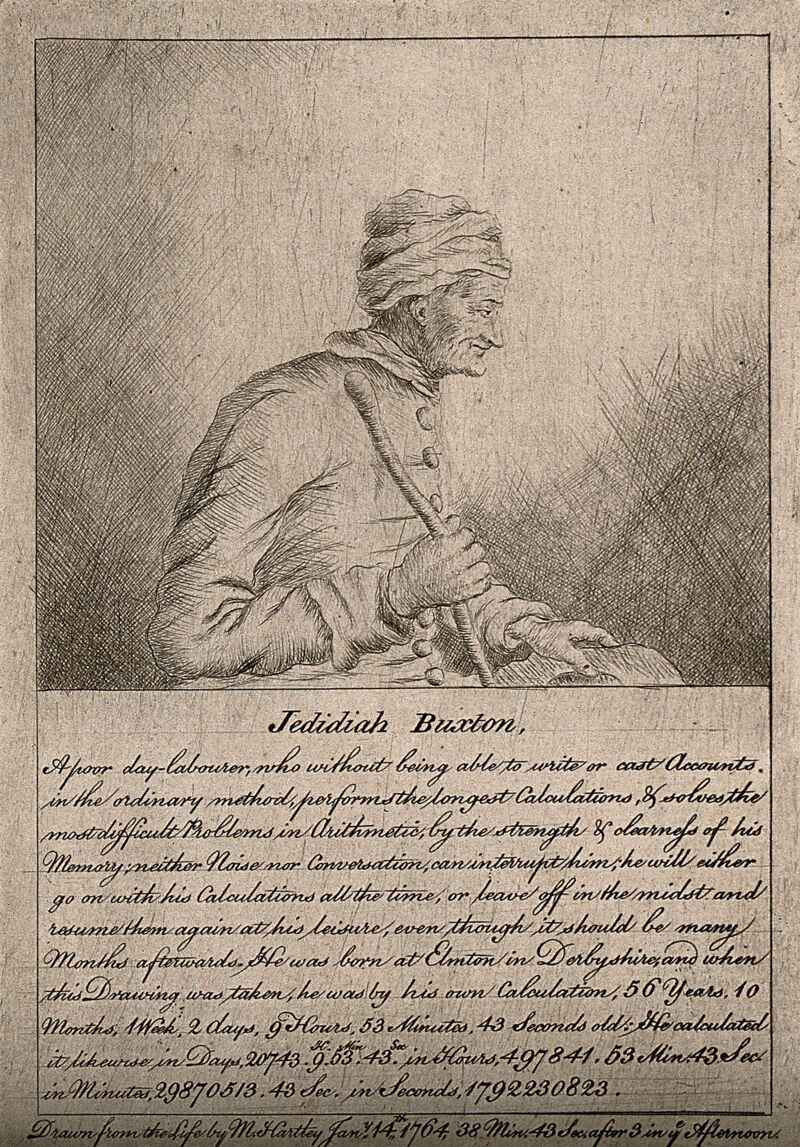 Jedidiah Buxton,
A poor day-labourer, who without being able to write or cast Accounts,
in the ordinary method, performs the longest Calculations, & solves the
most difficult Problems in Arithmetic, by the strength & clearness of his
Memory; neither Noise nor Conversation, can interrupt him; he will either
go on with his Calculations all the time, or leave off in the midst and
resume them again at his leisure, even though it should be many
Months afterwards. He was born at Elmton in Derbyshire, and when
this Drawing was taken, he was by his own Calculation, 56 Years, 10
Months, 1 Week, 2 days, 9 Hours, 53 Minutes, 43 Seconds old: He calculated
it likewise in Days, 20743. 9.H. 53.Min 43.Sec in Hours, 497841. 53 Min. 43 Sec.
in Minutes, 29870513. 43 Sec. in Seconds, 1792230823.
Drawn from the Life by M. Hartley Jany. 14th. 1764, 38 Min. 43 Sec. after 3 in ye Afternoon.